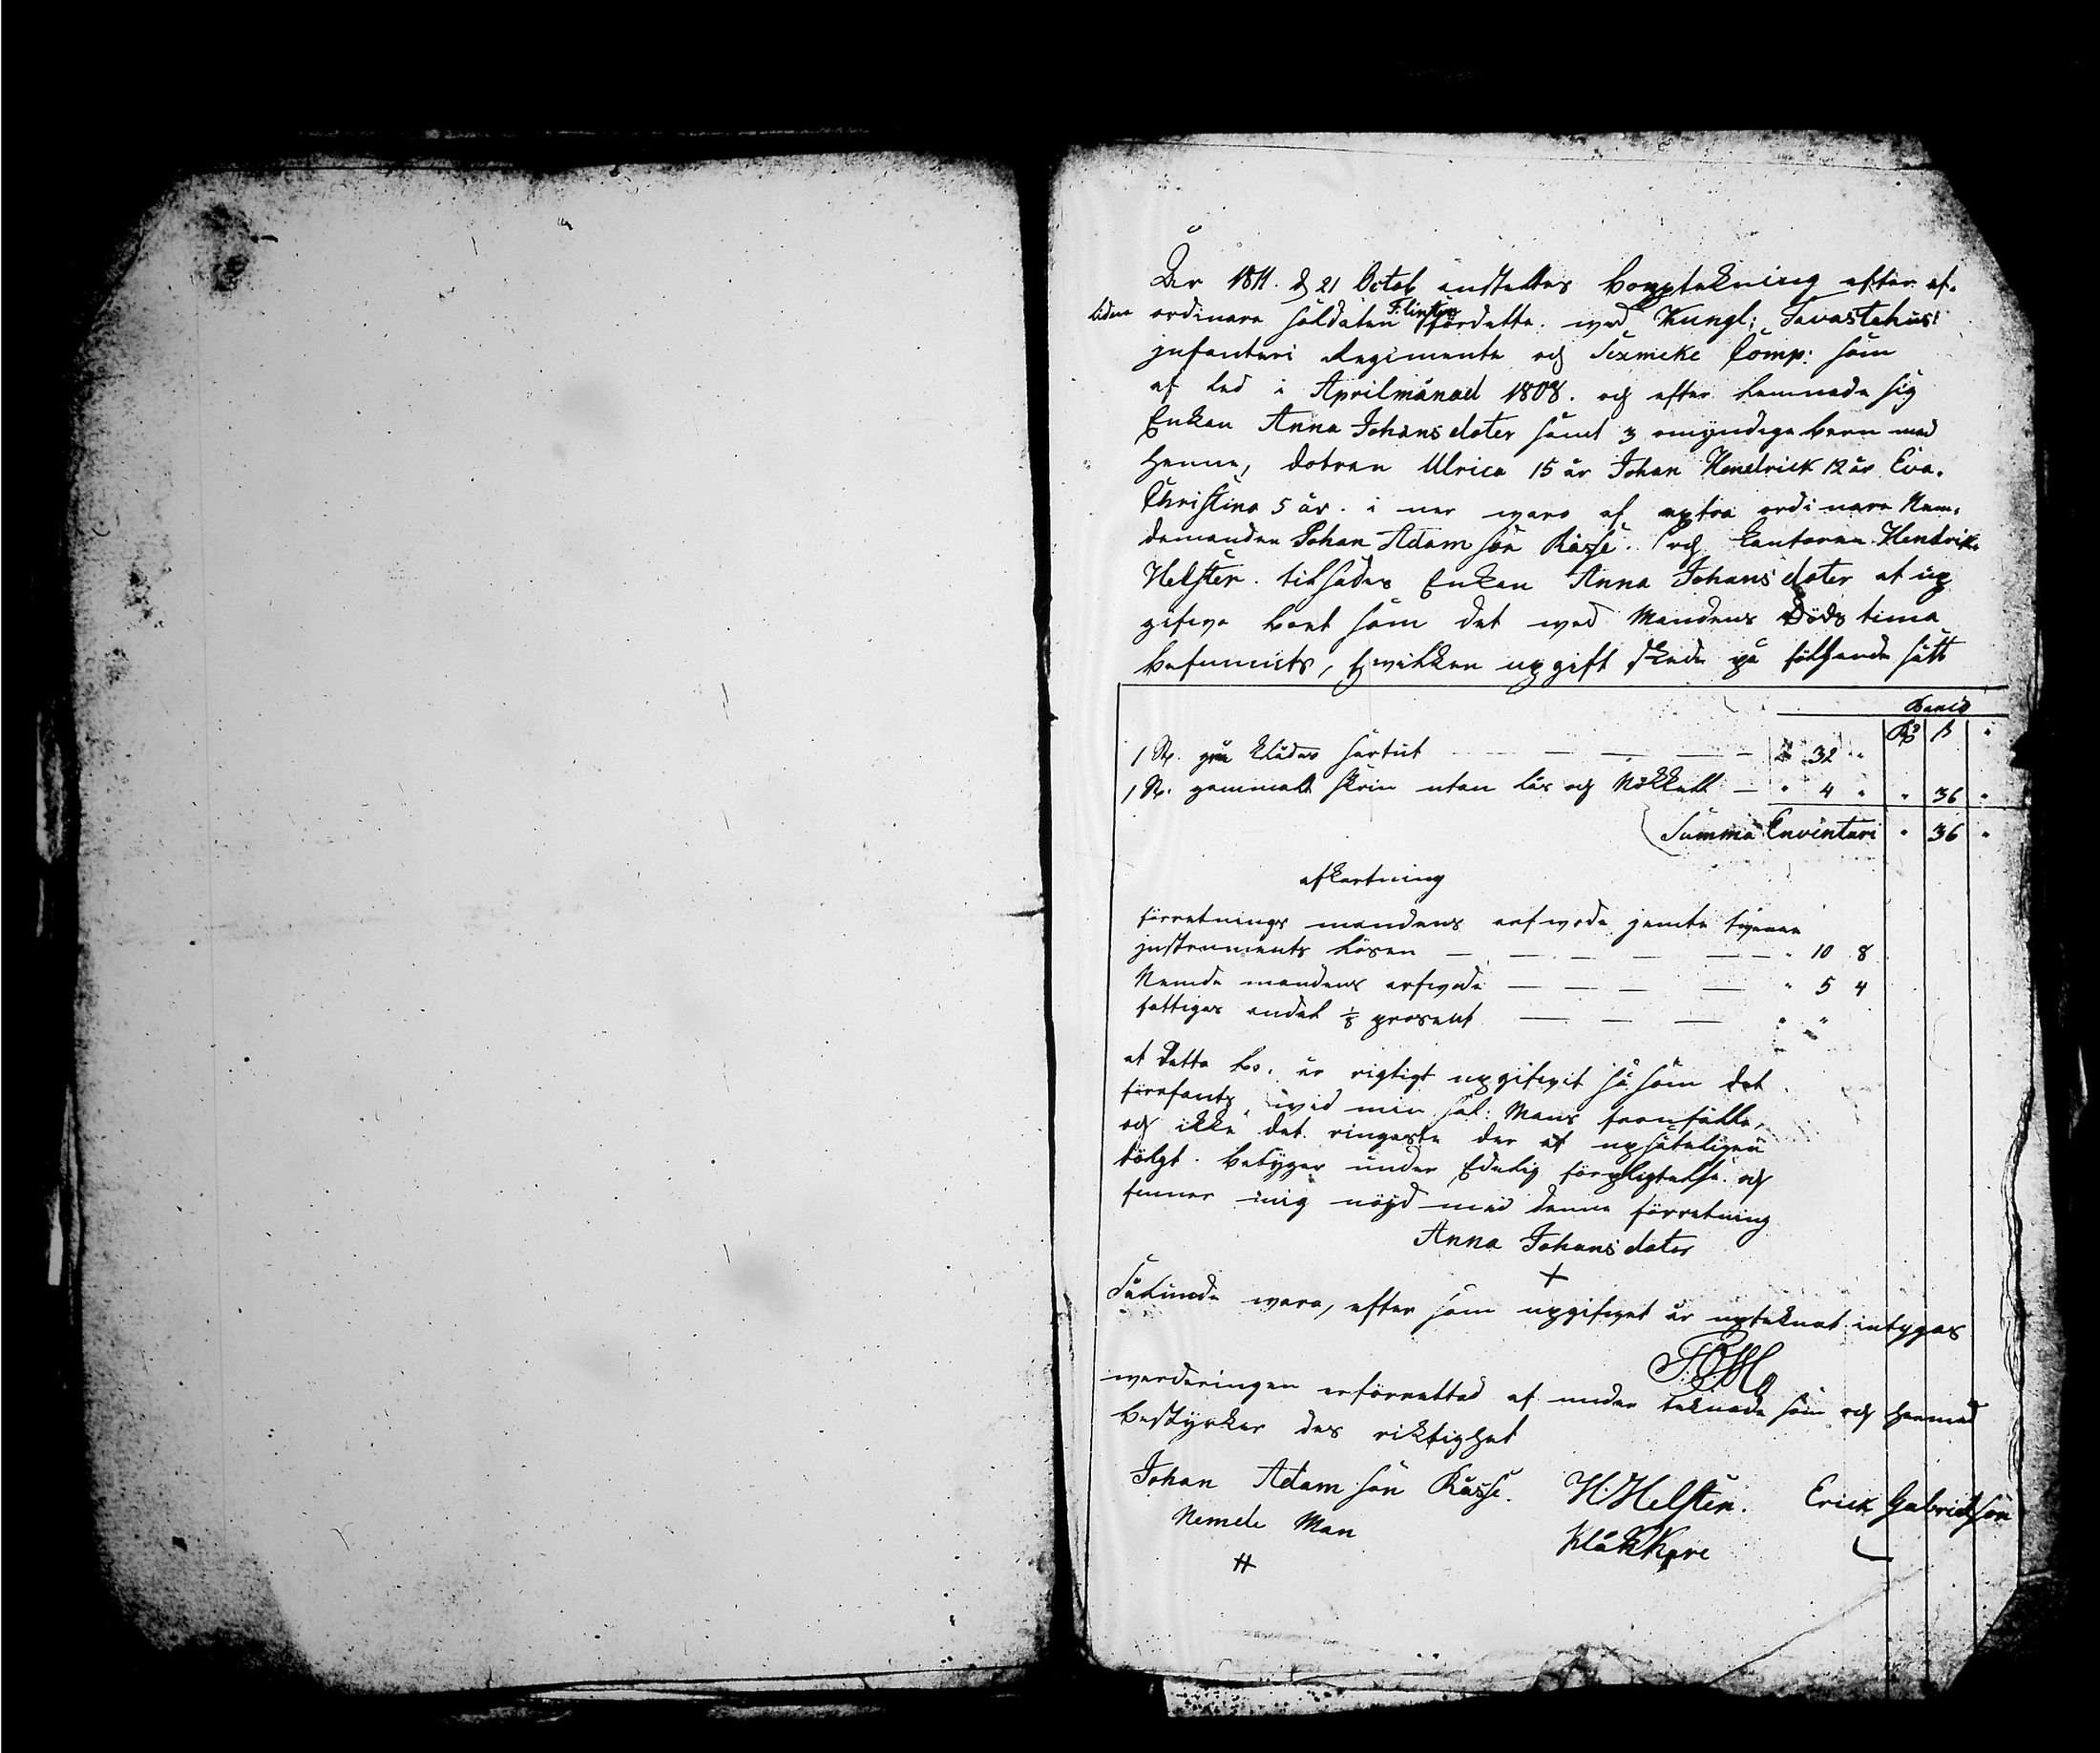 År 1811. d 21 Octob ansteltes bouptekning efter af.
lidne ordinare soldaten Flinten fördetta. wed Kungl: Tavastehus
jnfanteri Regimente och Sexmeke Comp: som
af led i Aprilmånad 1808. och efter lemnade sig
Enkan Anna Johans doter samt 3 omyndega barn med
henne, dotren Ulrica 15 år Johan Hendrick 12 år Eva.
Christina 5 år. i ner waro af extra ordinare Nem.
demanden Johan Adam son Råsse. och Cantoren Hendrik
Helsten. tilsades Enkan Anna Johans doter at up
gifwa boet som det wed Mandens Döds tima
befunnits, hwilken upgift skede på följande sätt
Banco
Rd ß
1 St. grå klädes sartut 32
1 St. gammalt skrin utan lås och Nökkell " 4 " " 36 "
Summa Enventari " 36 "
afkortning
förretnings mandens arfwode jemte twenne
jnstruments lösen " 10 8
Nemde mandens arfwode " 5 4
fattigas andel 1/8 prosent " "
at Detta bo. är rigtigt upgifwit så som det
förefants wid min sal: Mans fronfälle,
och ikke det ringaste der af upsåteligen
dölgt. betyger under Edelig förpligtelse. och
finner mig nöjd med denna förretning
Anna Johans doter
+
Sålunda wara, efter som upgifwet är upteknat intygas
werderingen är förrettad af under teknade som och hermed
bestyrker des riktighet
Johan Adam son Råsse. H:Helsten. Erick Gabrielsson
Nemde Man Klåkkare